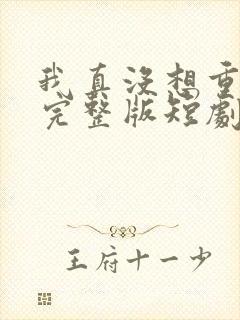 我真没想重
完整版短剧
王府十一少